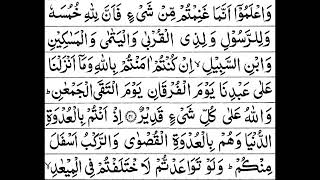 وَاعْلَمُوْۤا اَنَّمَا غَنِمْتُمْ مِّنْ شَیْءٍ فَاَنَّ لِلّٰهِ خُمُسَهٗ
وَلِلرَّسُوْلِ وَلِذِی الْقُرْبٰی وَالْیَتٰمٰی وَالْمَسٰكِیْنِ
وَابْنِ السَّبِیْلِ ۙ اِنْ كُنْتُمْ اٰمَنْتُمْ بِاللّٰهِ وَمَاۤ اَنْزَلْنَا
عَلٰی عَبْدِنَا یَوْمَ الْفُرْقَانِ یَوْمَ الْتَقَی الْجَمْعٰنِ ؕ
وَاللّٰهُ عَلٰی كُلِّ شَیْءٍ قَدِیْرٌ ۝ اِذْ اَنْتُمْ بِالْعُدْوَةِ
الدُّنْیَا وَهُمْ بِالْعُدْوَةِ الْقُصْوٰی وَالرَّكْبُ اَسْفَلَ
مِنْكُمْ ؕ وَلَوْ تَوَاعَدْتُّمْ لَاخْتَلَفْتُمْ فِی الْمِیْعٰدِ ۙ